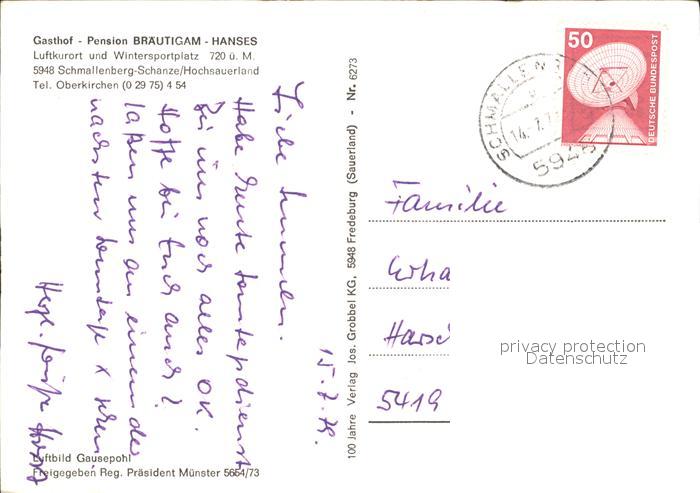 Gasthof - Pension BRÄUTIGAM - HANSES
Luftkurort und Wintersportplatz 720 ü. M.
5948 Schmallenberg-Schanze/Hochsauerland
Tel. Oberkirchen (0 29 75) 4 54
Liebe
Habe heute
Bei uns noch alles OK.
Hoffe bei Euch auch?
laßen uns an einem der
nächsten
Herzl. Grüße Horst
15.7.79.
Luftbild Gausepohl
Freigegeben Reg. Präsident Münster 5664/73
100 Jahre Verlag Jos. Grobbel KG, 5948 Fredeburg (Sauerland) - Nr. 6273
50
DEUTSCHE BUNDESPOST
SCHMALLENB
14.7.7
5948
Familie
5419
privacy protection
Datenschutz